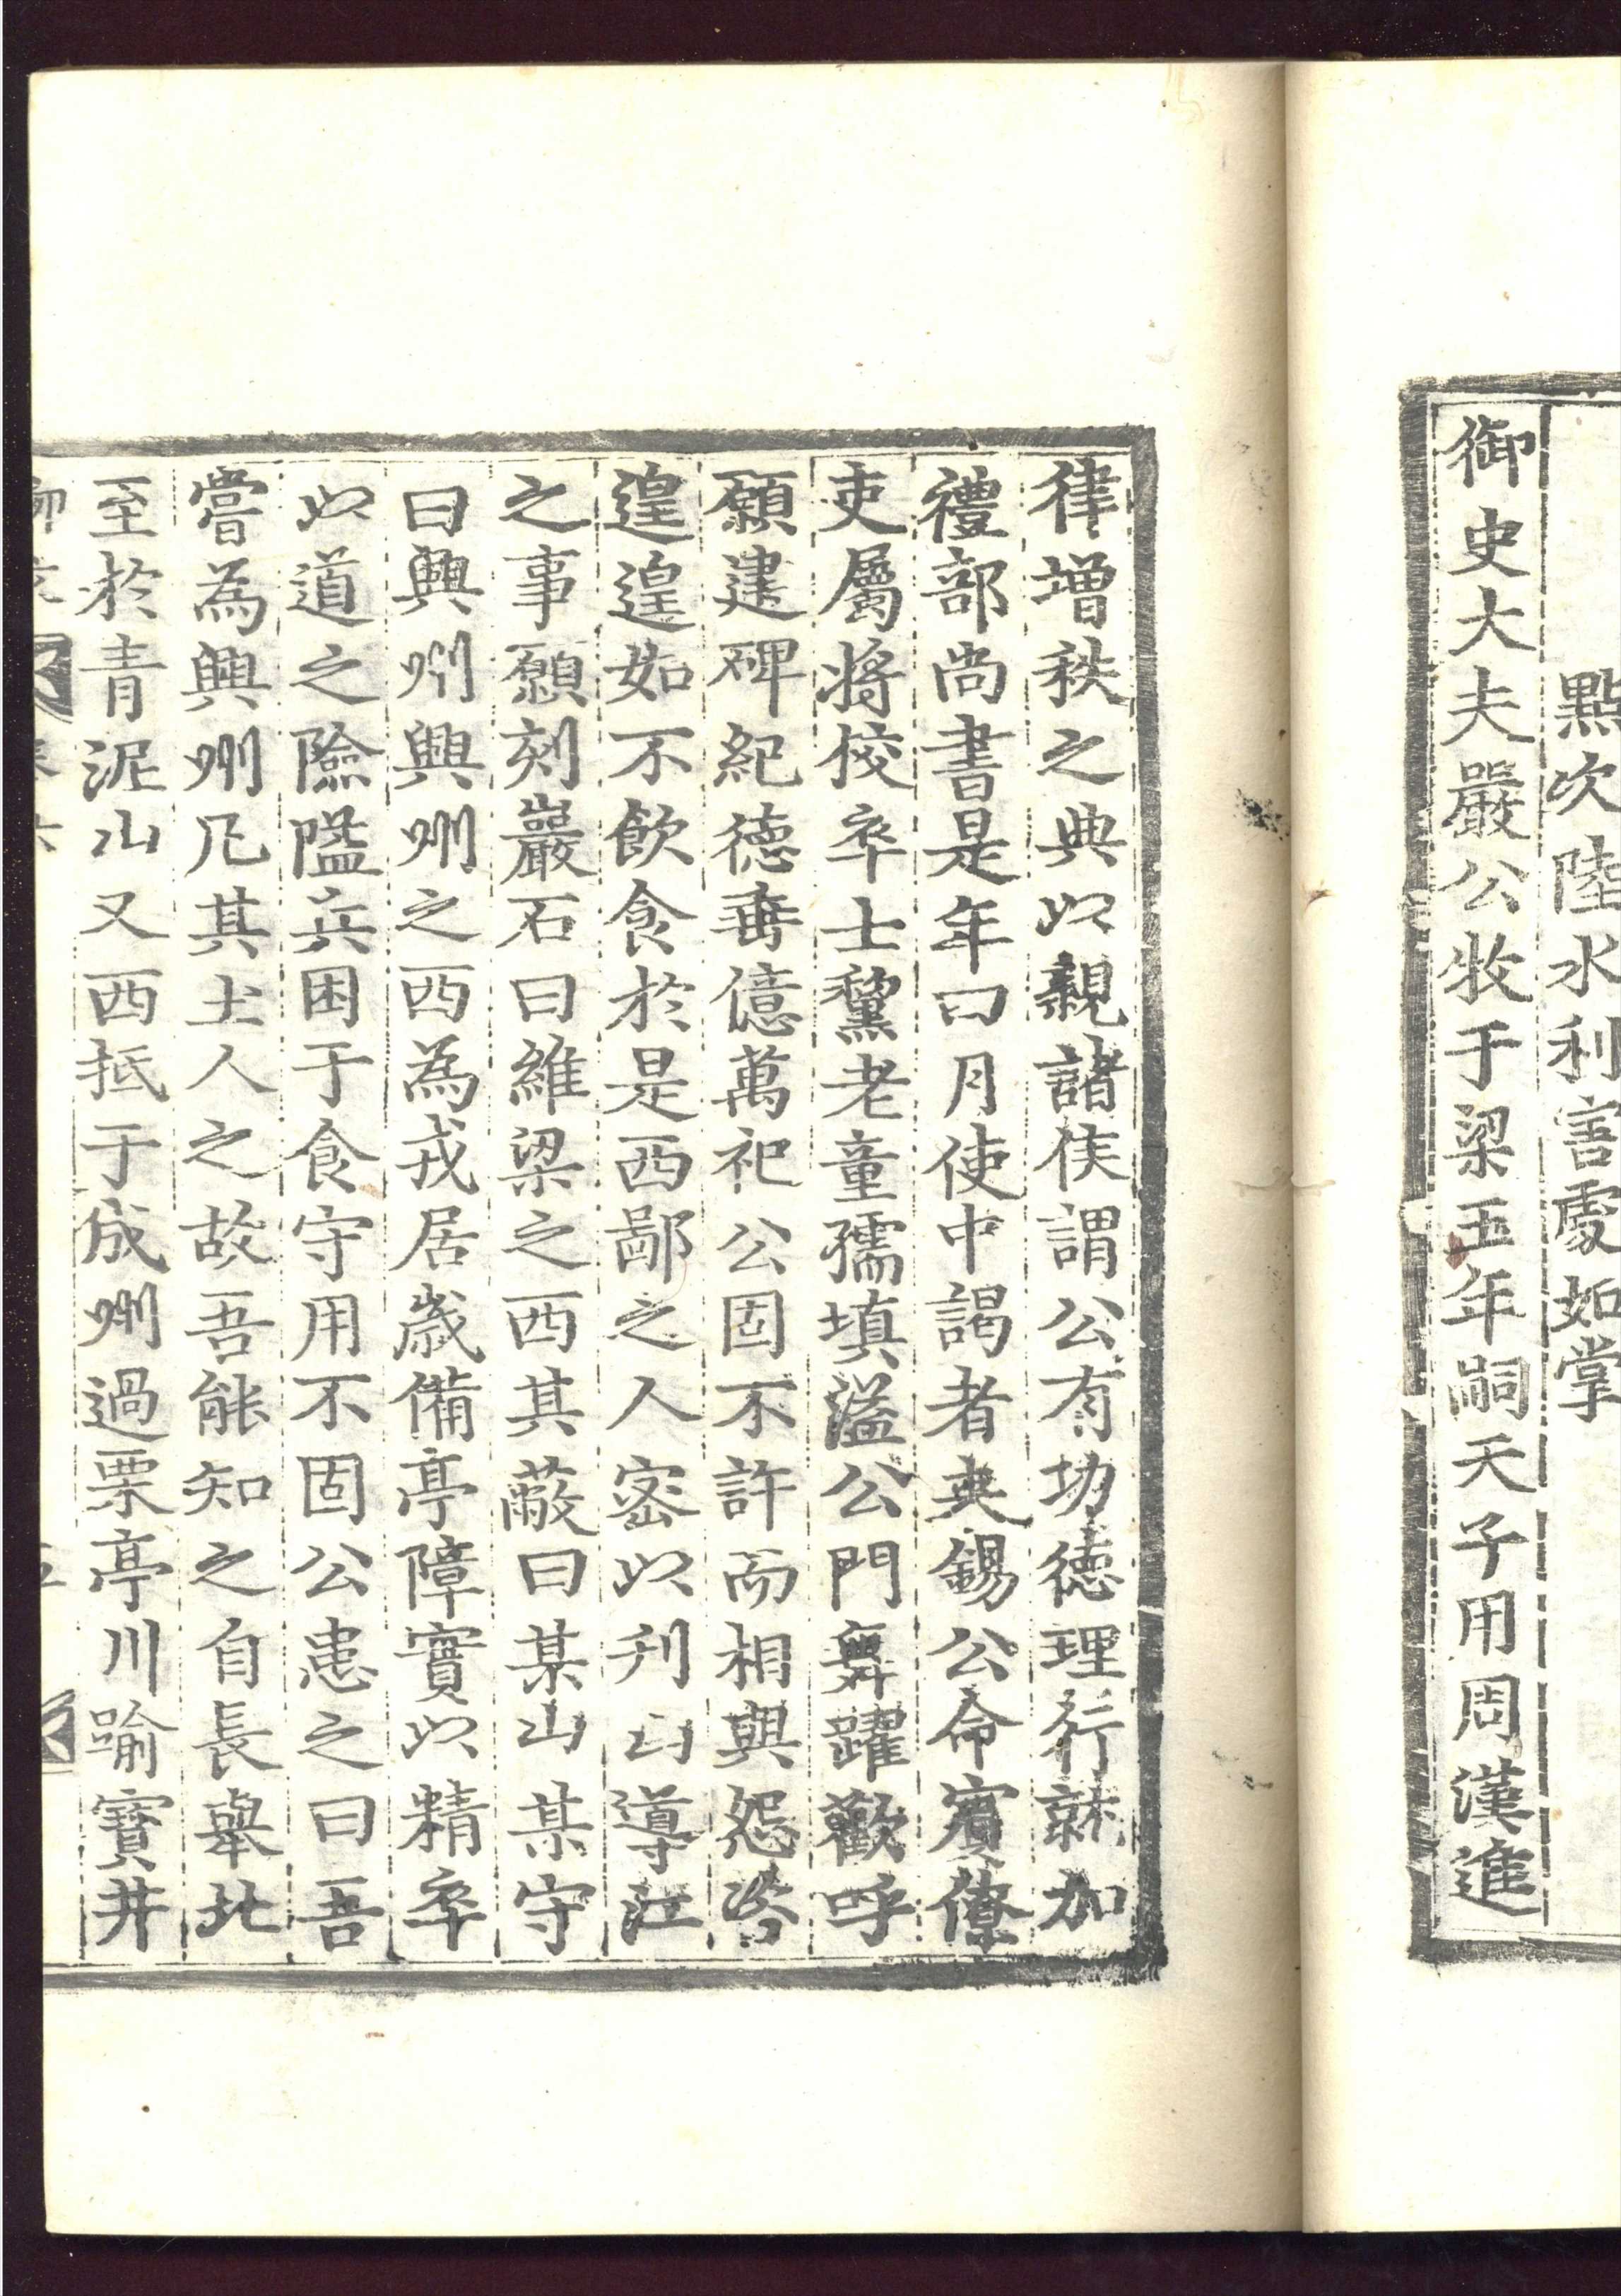 點次陸水利害處如掌
御史大夫嚴公牧于梁五年嗣天子用周漢進
律增秩之典以親諸侯謂公有功德理行就加
禮部尚書是年四月使中謁者來錫公命賓僚
吏屬將校卒士黧老童孺填溢公門舞躍歡呼
願建碑紀德垂億萬祀公固不許而相與怨咨
遑遑如不飲食於是西鄙之人密以刋山導江
之事願刻巖石曰維梁之西其蔽曰某山某守
曰興州興州之西為戎居歲備亭障實以精卒
以道之險隘兵困于食守用不固公患之曰吾
嘗為興州凡其土人之故吾能知之自長舉北
至於青泥山又西抵于成州過栗亭川踰寶井